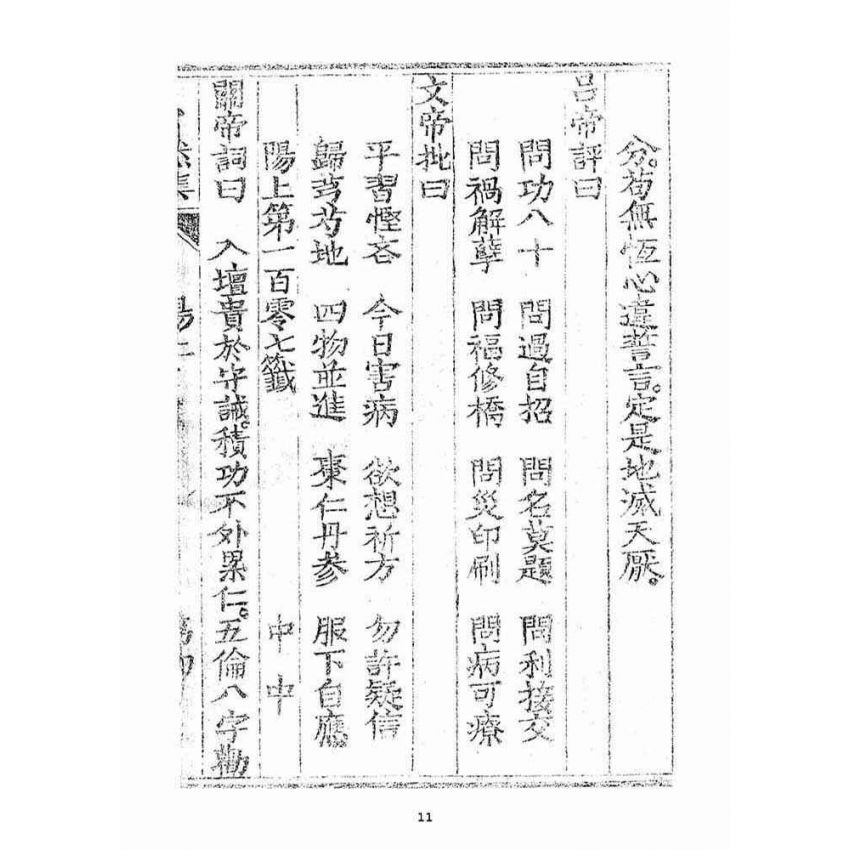 分。苟無恆心違誓言。定是地滅天厭。
呂帝評曰
問功八十 問過自招 問名莫題 問利接交
問禍解孽 問福修橋 問災印刷 問病可療
文帝批曰
平習慳吝 今日害病 欲想祈方 勿許疑信
歸芎芍地 四物並進 棗仁丹參 服下自應
陽上第一百零七籤 中中
關帝詞曰 入壇貴於守誠。積功不外累仁。五倫八字勸
集
11